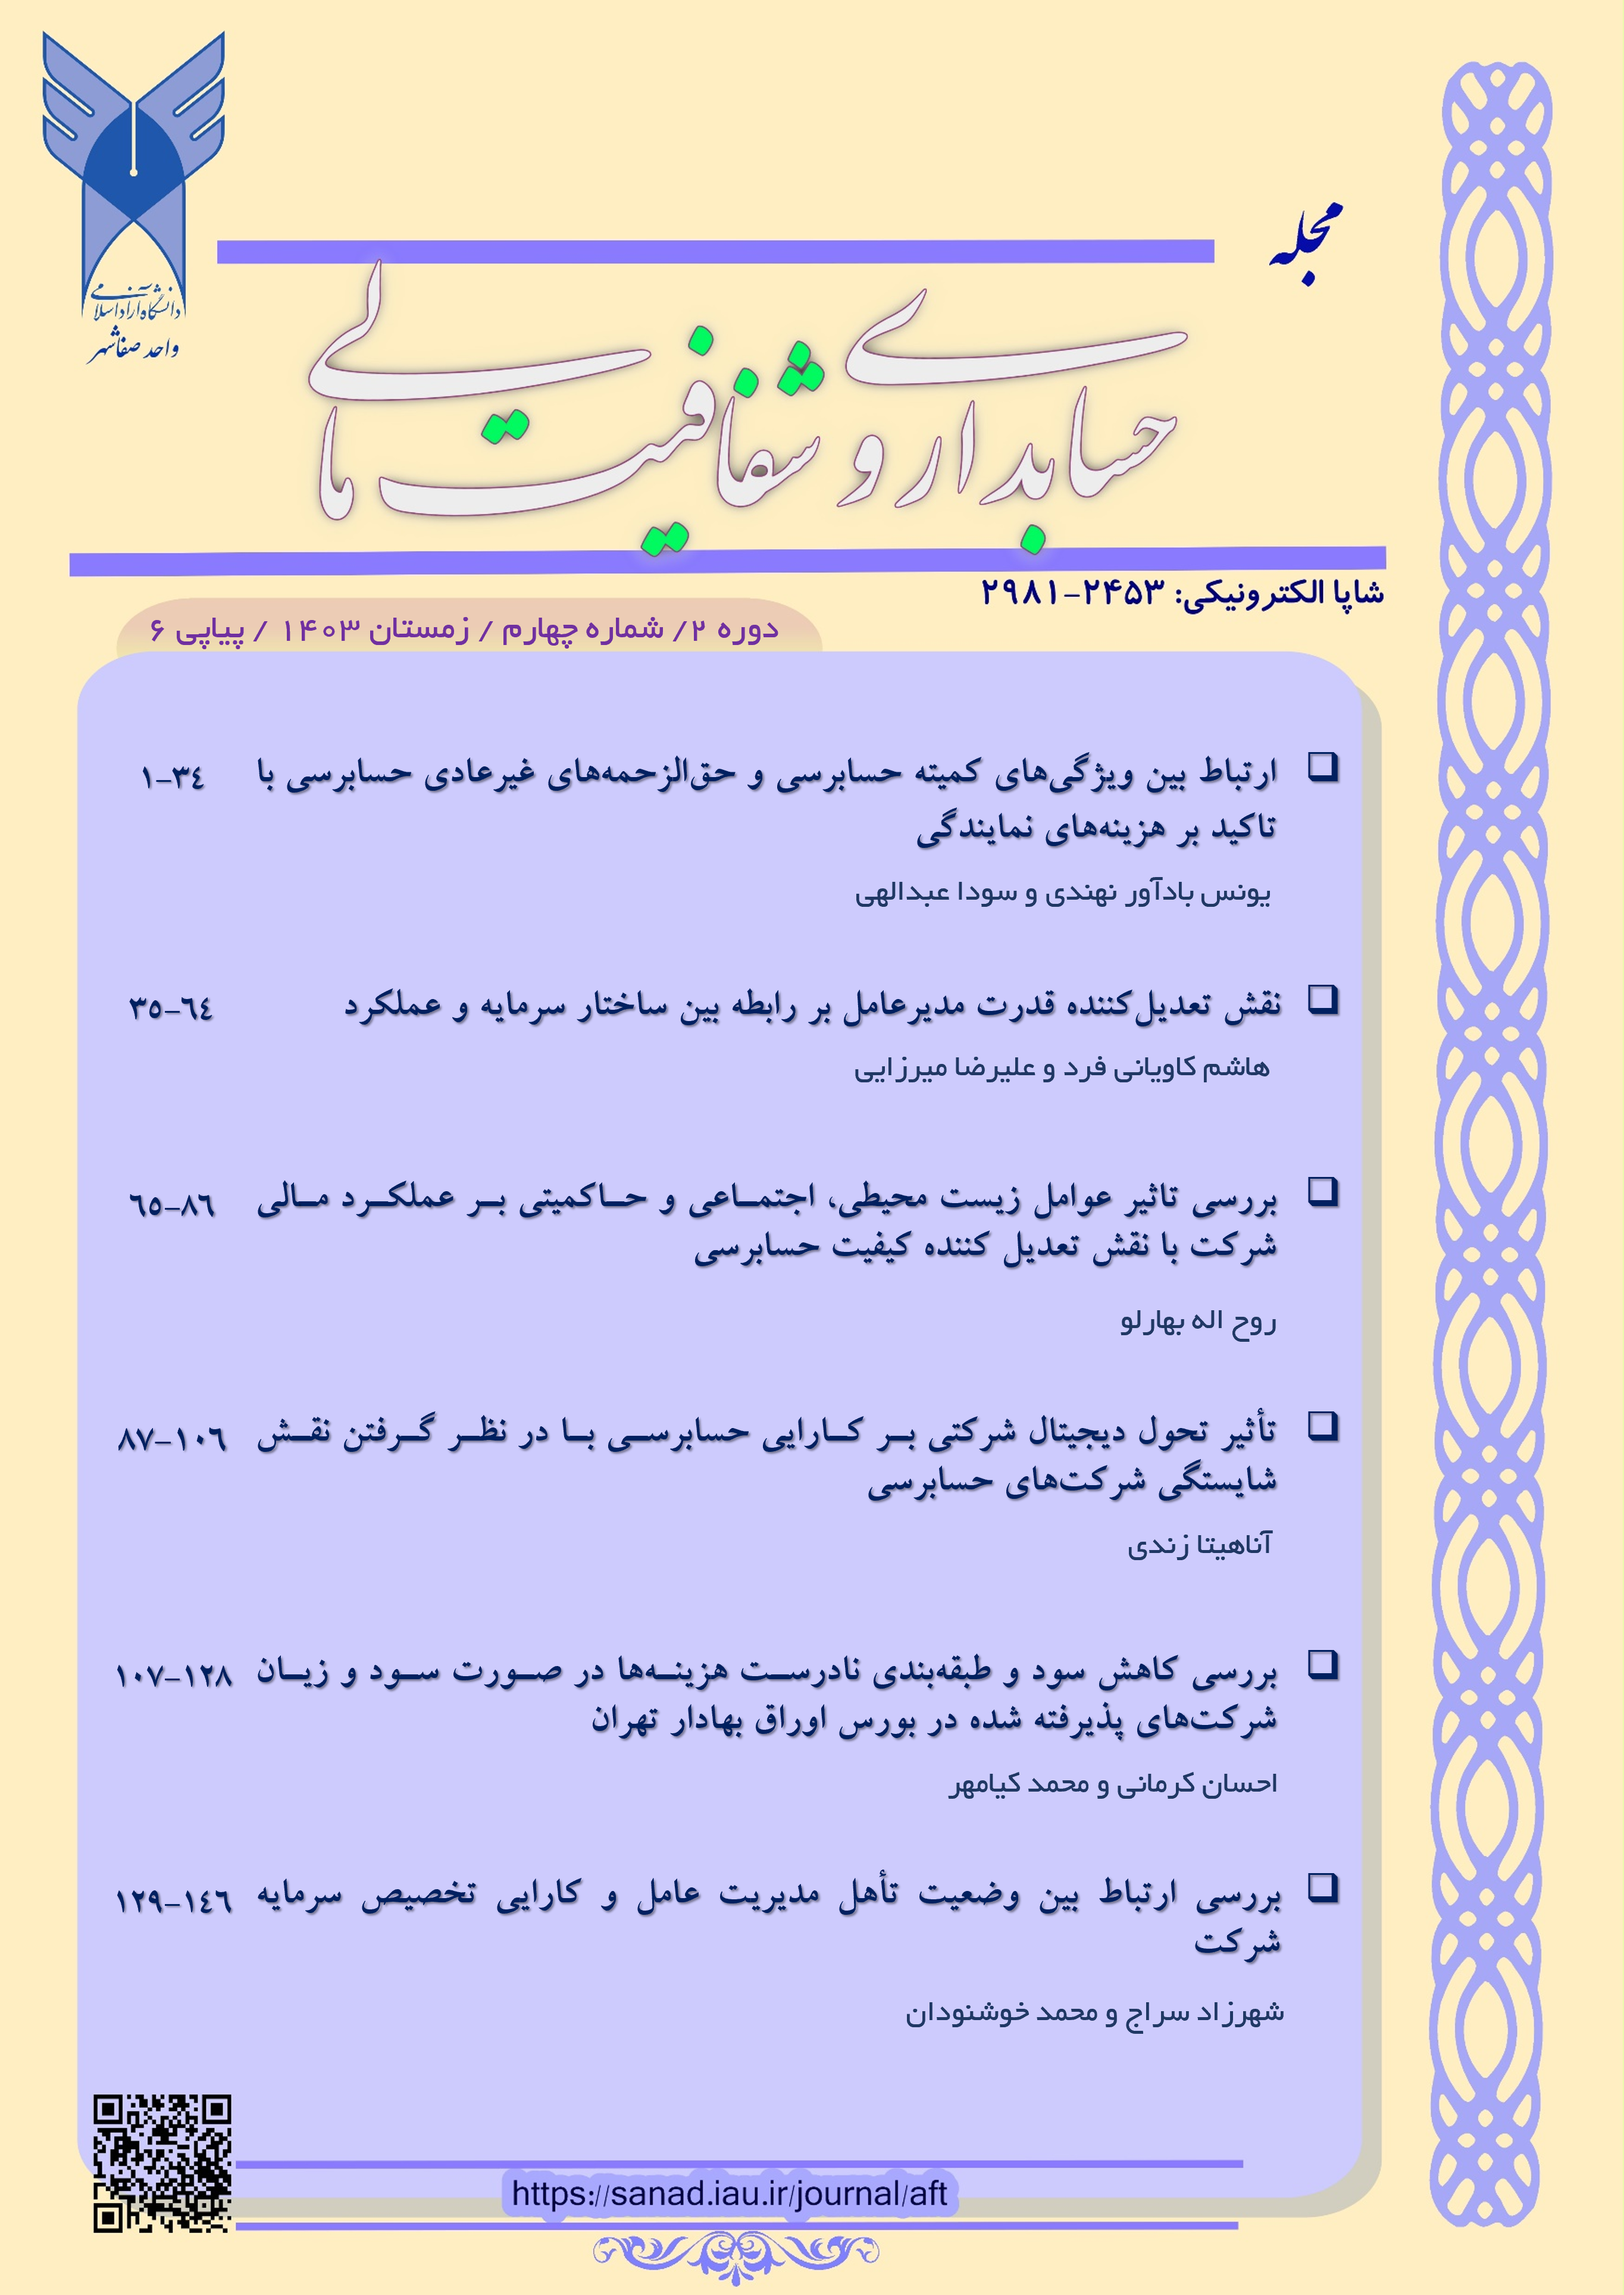 مجله
حسابداری و شفافیت مالی
دانشگاه آزاد اسلامی
واحد صفاشهر
شاپا الکترونیکی: ۲۴۵۳-۲۹۸۱
دوره ۲/ شماره چهارم / زمستان ۱۴۰۳ / پیاپی ۶
ارتباط بین ویژگی‌های کمیته حسابرسی و حق‌الزحمه‌های غیرعادی حسابرسی با ۱-۳٤
تاکید بر هزینه‌های نمایندگی
یونس بادآور نهندی و سودا عبدالهی
نقش تعدیل‌کننده قدرت مدیرعامل بر رابطه بین ساختار سرمایه و عملکرد ۳٥-٦٤
هاشم کاویانی فرد و علیرضا میرزایی
بررسی تاثیر عوامل زیست محیطی، اجتمـاعی و حـاکمیتی بـر عملکـرد مـالی ٦٥-۸٦
شرکت با نقش تعدیل کننده کیفیت حسابرسی
روح اله بهارلو
تأثیر تحول دیجیتال شرکتی بـر کـارایی حسابرسـی بـا در نظـر گـرفتن نقـش ۸۷-۱۰٦
شایستگی شرکت‌های حسابرسی
آناهیتا زندی
بررسی کاهش سود و طبقه‌بندی نادرسـت هزینـه‌ها در صـورت سـود و زیـان ۱۰۷-۱۲۸
شرکت‌های پذیرفته شده در بورس اوراق بهادار تهران
احسان کرمانی و محمد کیامهر
بررسی ارتباط بین وضعیت تأهل مدیریت عامل و کارایی تخصیص سرمایه ۱۲۹-۱٤٦
شرکت
شهرزاد سراج و محمد خوشنودان
https://sanad.iau.ir/journal/aft